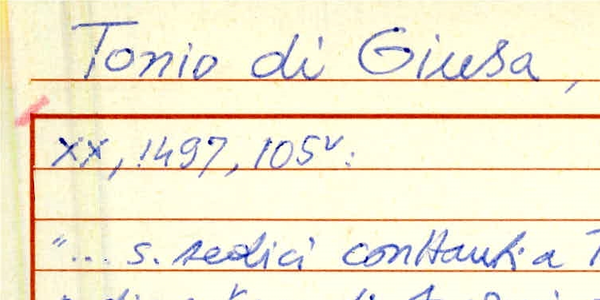 Tonio di Giusa,
XX, 1497, 105v:
"... s. sedici contanti a